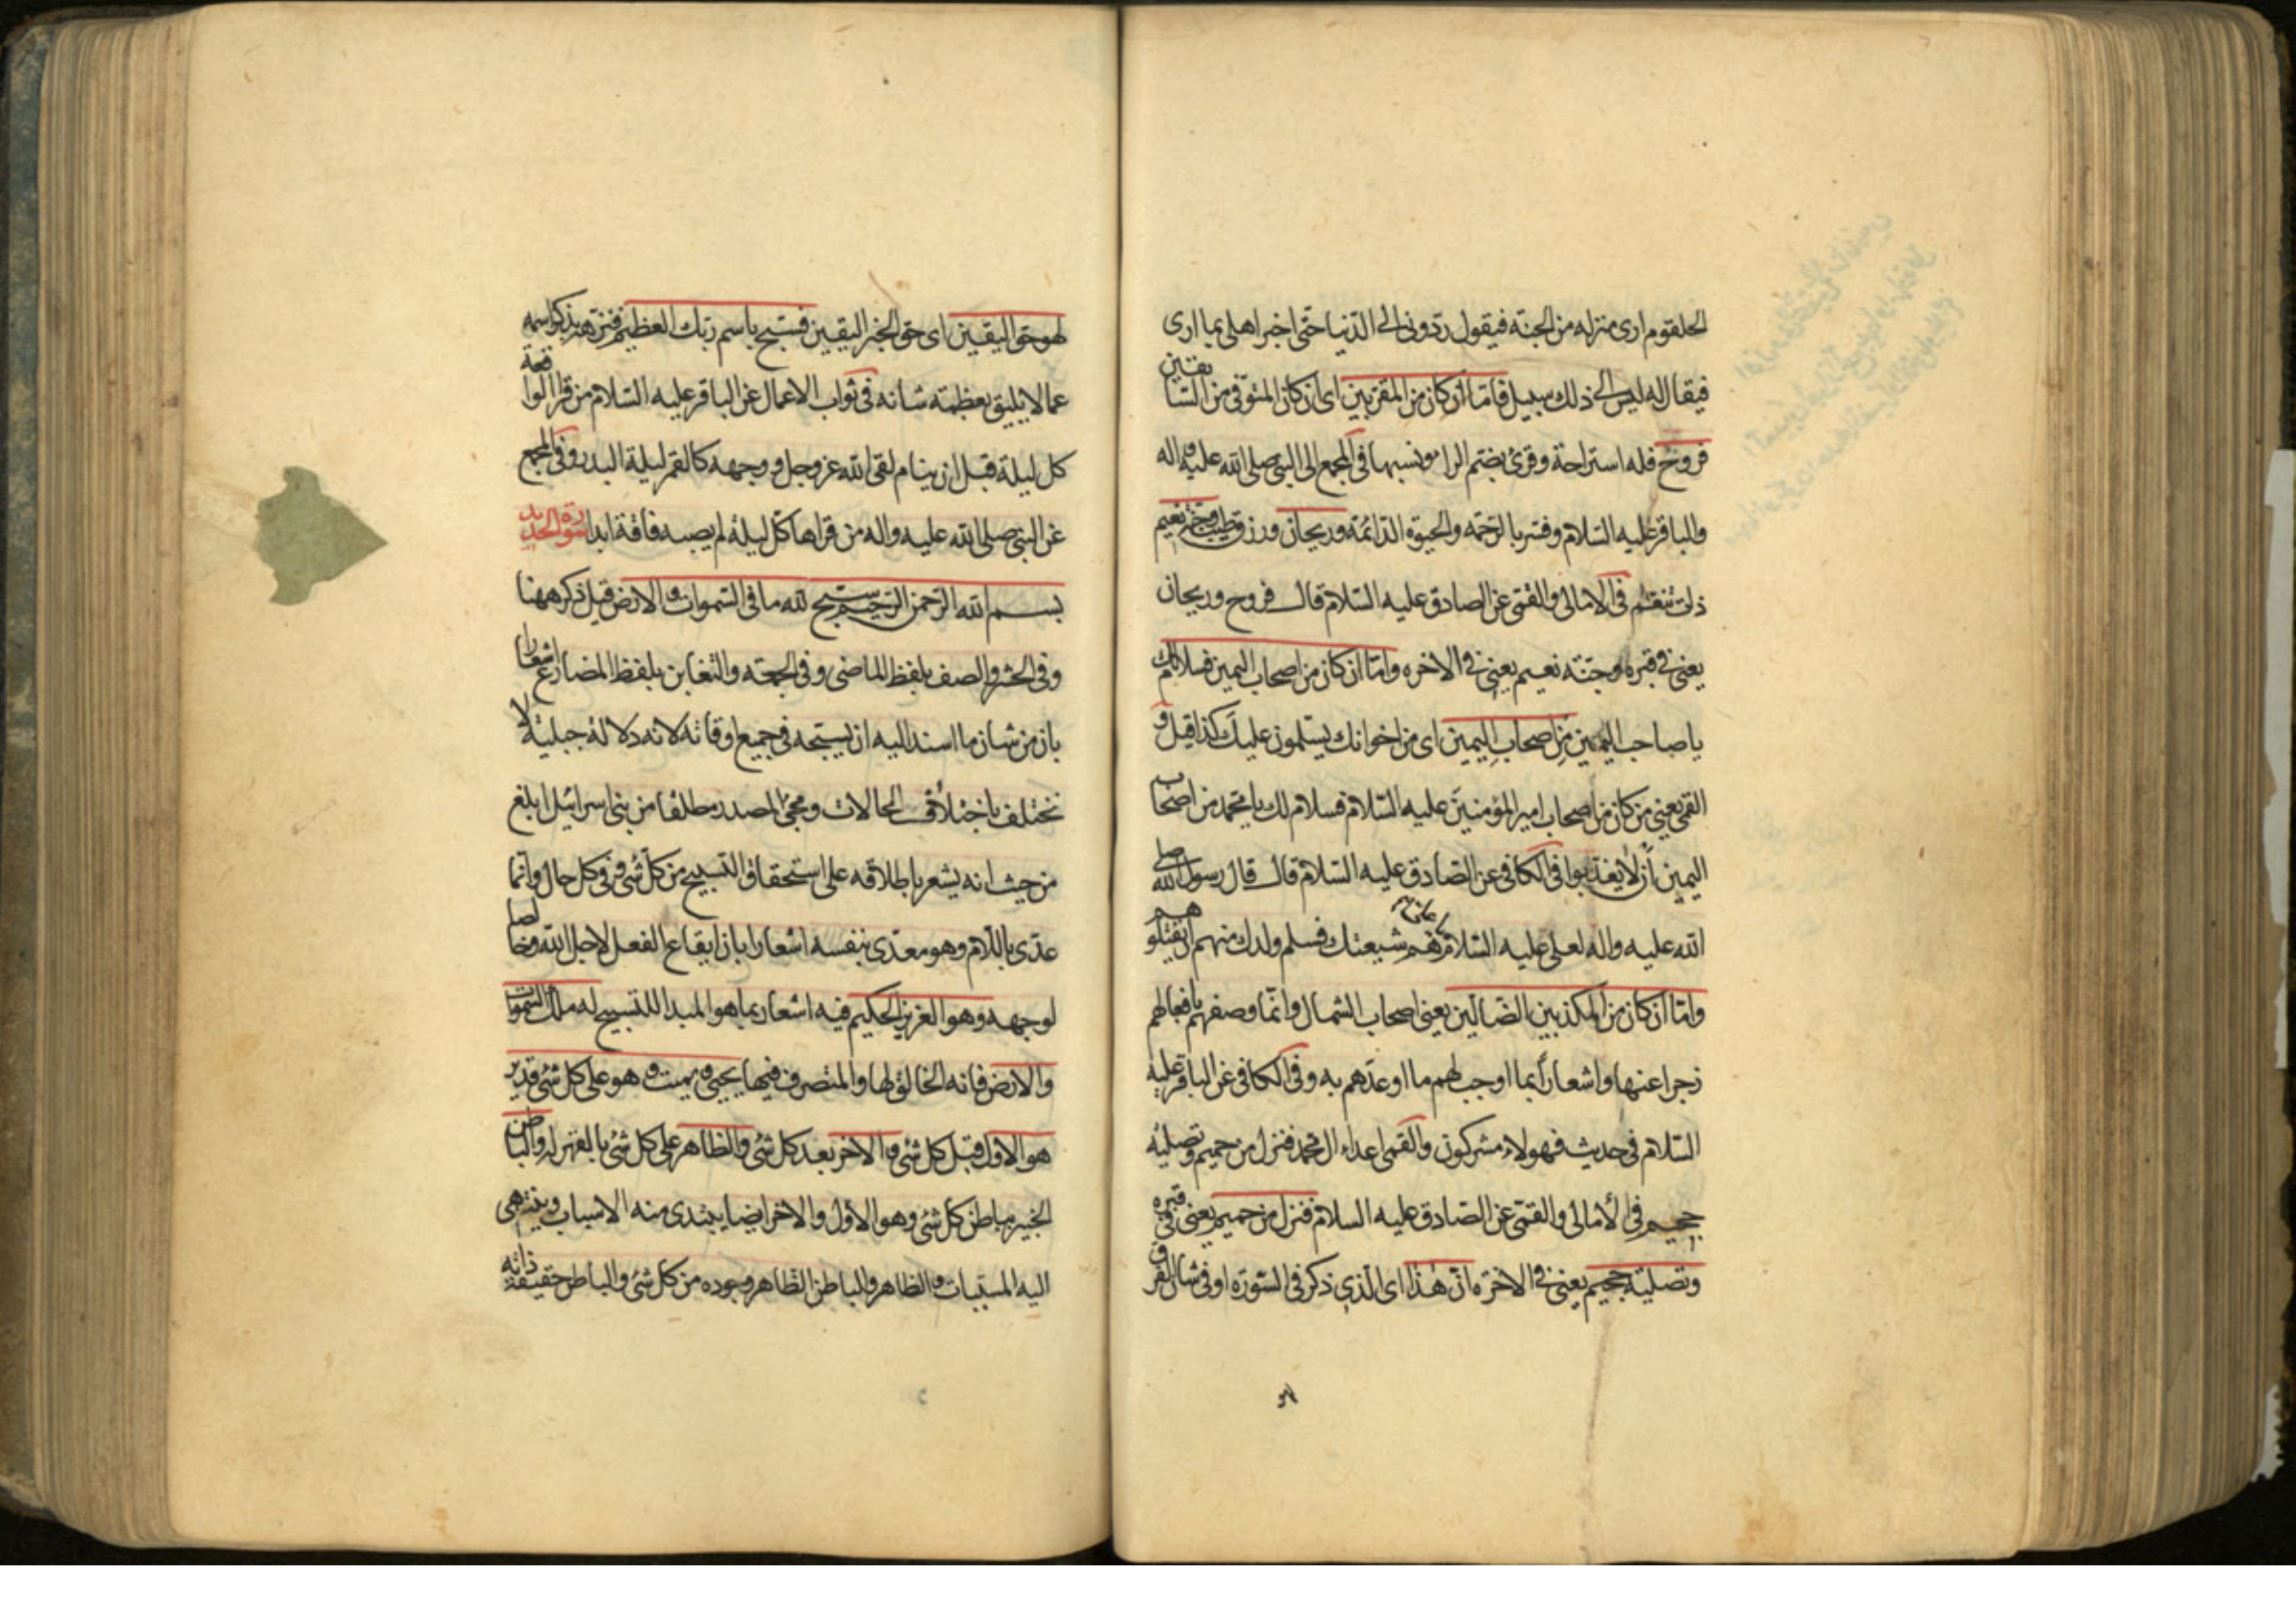 الحلقوم ارى منزله من الجنة فيقول ردّونى الى الدّنيا حتّى اخبر اهلى بما ارى
فيقال له ليس الى ذلك سبيل فامّا ان كان من المقرّبين اى ان كان المتوفّى من السّابقين
فروح فله استراحة وقرئ بضمّ الراء ونسبها فى المجمع الى النبى صلى الله عليه واله
والباقر عليه السّلام وفسر بالرّحمة والحيوة الدّائمة وريحان ورزق طيّب وجنّة نعيم
ذات تنعّم فى الامالى والقمّى عن الصادق عليه السّلام قال فروح وريحان
يعنى فى قبره وجنّة نعيم يعنى فى الاخرة وامّا ان كان من اصحاب اليمين فسلام لك
يا صاحب اليمين من اصحاب اليمين اى من اخوانك يسلّمون عليك كذا قيل و
القمى يعنى من كان من اصحاب امير المؤمنين عليه السّلام فسلام لك يا محمد من اصحاب
اليمين أن لا يعذبوا فى الكافى عن الصّادق عليه السّلام قال قال رسول الله صلى
الله عليه واله لعلى عليه السّلام هم شيعتك فسلم ولدك منهم ان يقتلوهم
وامّا ان كان من المكذبين الضّالّين يعنى اصحاب الشمال وانّما وصفهم بافعالهم
زجرا عنها واشعاراً بما اوجب لهم ما اوعدهم به وفى الكافى عن الباقر عليه
السّلام فى حديث فهولاء مشركون والقمى اعداء ال محمد فنزل من حميم وتصلية
جحيم فى الأمالى والقمّى عن الصّادق عليه السلام فنزل من حميم يعنى فى قبره
وتصلية جحيم يعنى فى الاخرة انّ هذا اى الّذى ذكر فى السّورة او فى شان الفرق
لهو حق اليقين اى حق الخبر اليقين فسبّح باسم ربّك العظيم فنزّهه بذكر اسمه
عما لا يليق بعظمة شانه فى ثواب الاعمال عن الباقر عليه السّلام من قرا الواقعة
كل ليلة قبل ان ينام لقى الله عز وجل ووجهه كالقمر ليلة البدر وفى المجمع
عن النبى صلى الله عليه واله من قراها كلّ ليلة لم يصبه فاقة ابدا سورة الحديد
بسم الله الرّحمن الرّحيم سبّح لله ما فى السّموات والارض قيل ذكر ههنا
وفى الحشر والصف بلفظ الماضى وفى الجمعة والتغابن بلفظ المضارع اشعارا
بان من شان ما اسند اليه ان يسبّحه فى جميع اوقاته لانه دلالة جبليّة لا
تختلف باختلاف الحالات ومجئ المصدر مطلقا من بنى اسرائيل ابلغ
من حيث انه يشعر باطلاقه على استحقاق التسبيح من كلّ شئ وفى كل حال وانّما
عدّى باللّام وهو معدّى بنفسه اشعارا بان ايقاع الفعل لاجل الله وخالصا
لوجهه وهو العزيز الحكيم فيه اشعار بما هو المبدا للتسبيح له ملك السّموات
والارض فانه الخالق لها والمتصرف فيها يحيى ويميت وهو على كل شئ قدير
هو الاول قبل كل شئ والاخر بعد كل شئ والظاهر على كل شئ بالقهر له والباطن
الخبير بباطن كل شئ وهو الأوّل والاخر ايضا يبتدى منه الاسباب وينتهى
اليه المسبّبات والظاهر والباطن الظّاهر وجوده من كل شئ والباطن حقيقة ذاته